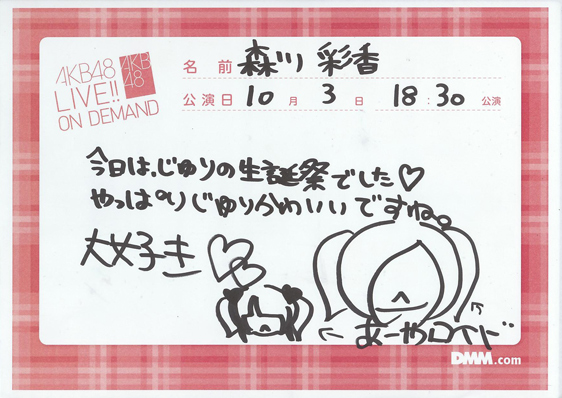 AKB48
LIVE!!
ON DEMAND
AKB
48
名前 森川 彩香
公演日 10月 3日 18:30 公演
今日は、じゅりの生誕祭でした♡
やっぱりじゅりかわいいですね。
大好き
あーやロイド
DMM.com